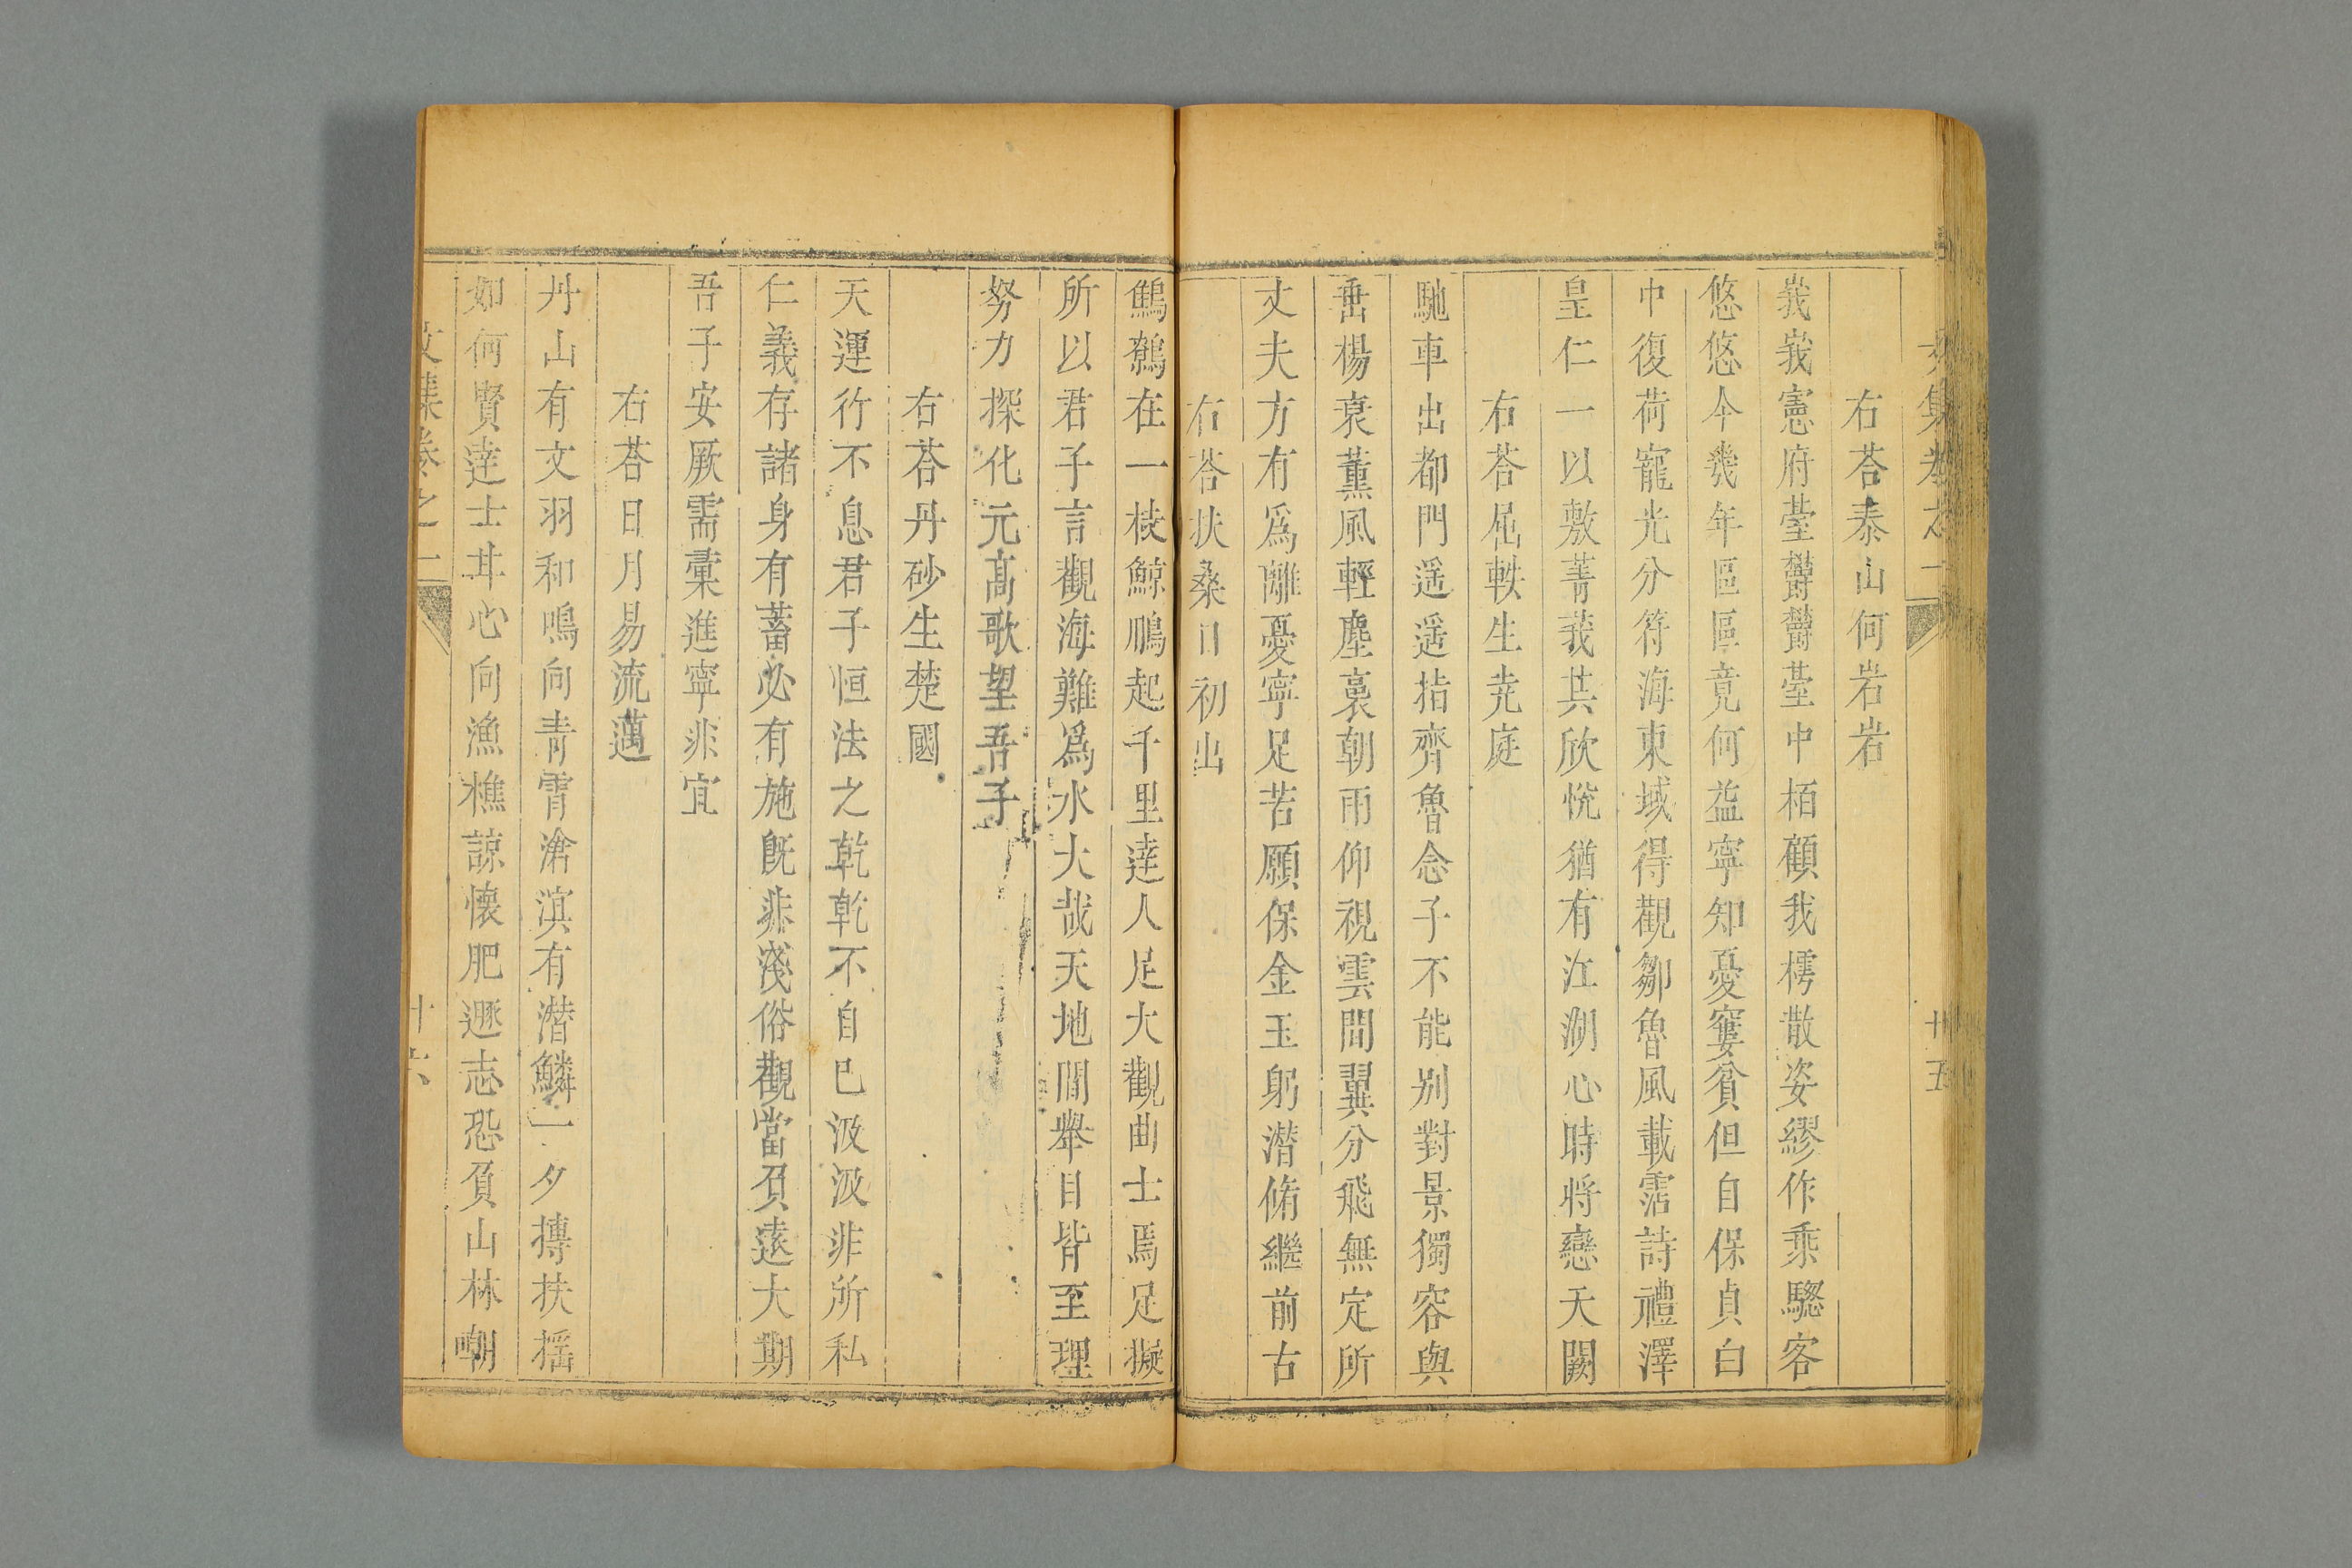 文集卷之一
十五
右荅泰山何岩岩
峩峩憲府䑓欝欝䑓中栢顧我樗散姿繆作乘驄客
悠悠今幾年區區竟何益寧知憂窶貧但自保貞白
中復荷寵光分符海東域得觀鄒魯風載霑詩禮澤
皇仁一以敷菁莪共欣恱猶有江湖心時將戀天闕
右荅屈軼生尭庭
馳車出都門遥遥指齊魯念子不能别對景獨容與
垂楊衰薰風輕塵裛朝雨仰視雲間翼分飛無定所
丈夫方有爲離憂寧足苦願保金玉躬潜脩繼前古
右荅扶桑日初出
鷦鷯在一枝鯨鵬起千里逹人足大觀曲士焉足擬
所以君子言觀海難爲水大哉天地間舉目皆至理
努力探化元髙歌望吾子
右荅丹砂生楚國
天運行不息君子恒法之乾乾不自已汲汲非所私
仁義存諸身有蓄必有施旣非淺俗觀當負遠大期
吾子安厥需彙進寧非宜
右荅日月易流邁
丹山有文羽和鳴向青霄滄溟有潜鱗一夕摶扶摇
如何賢逹士其心向漁樵諒懐肥遯志恐負山林嘲
文集卷之一
十六